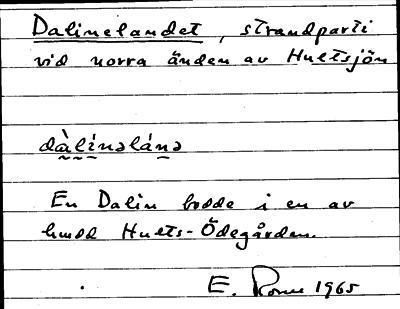 Dalinelandet, strandparti
vid norra änden av Hultsjön
dàlínəlánə
En Dalin bodde i en av
Hults-Ödegården.
E. 1965